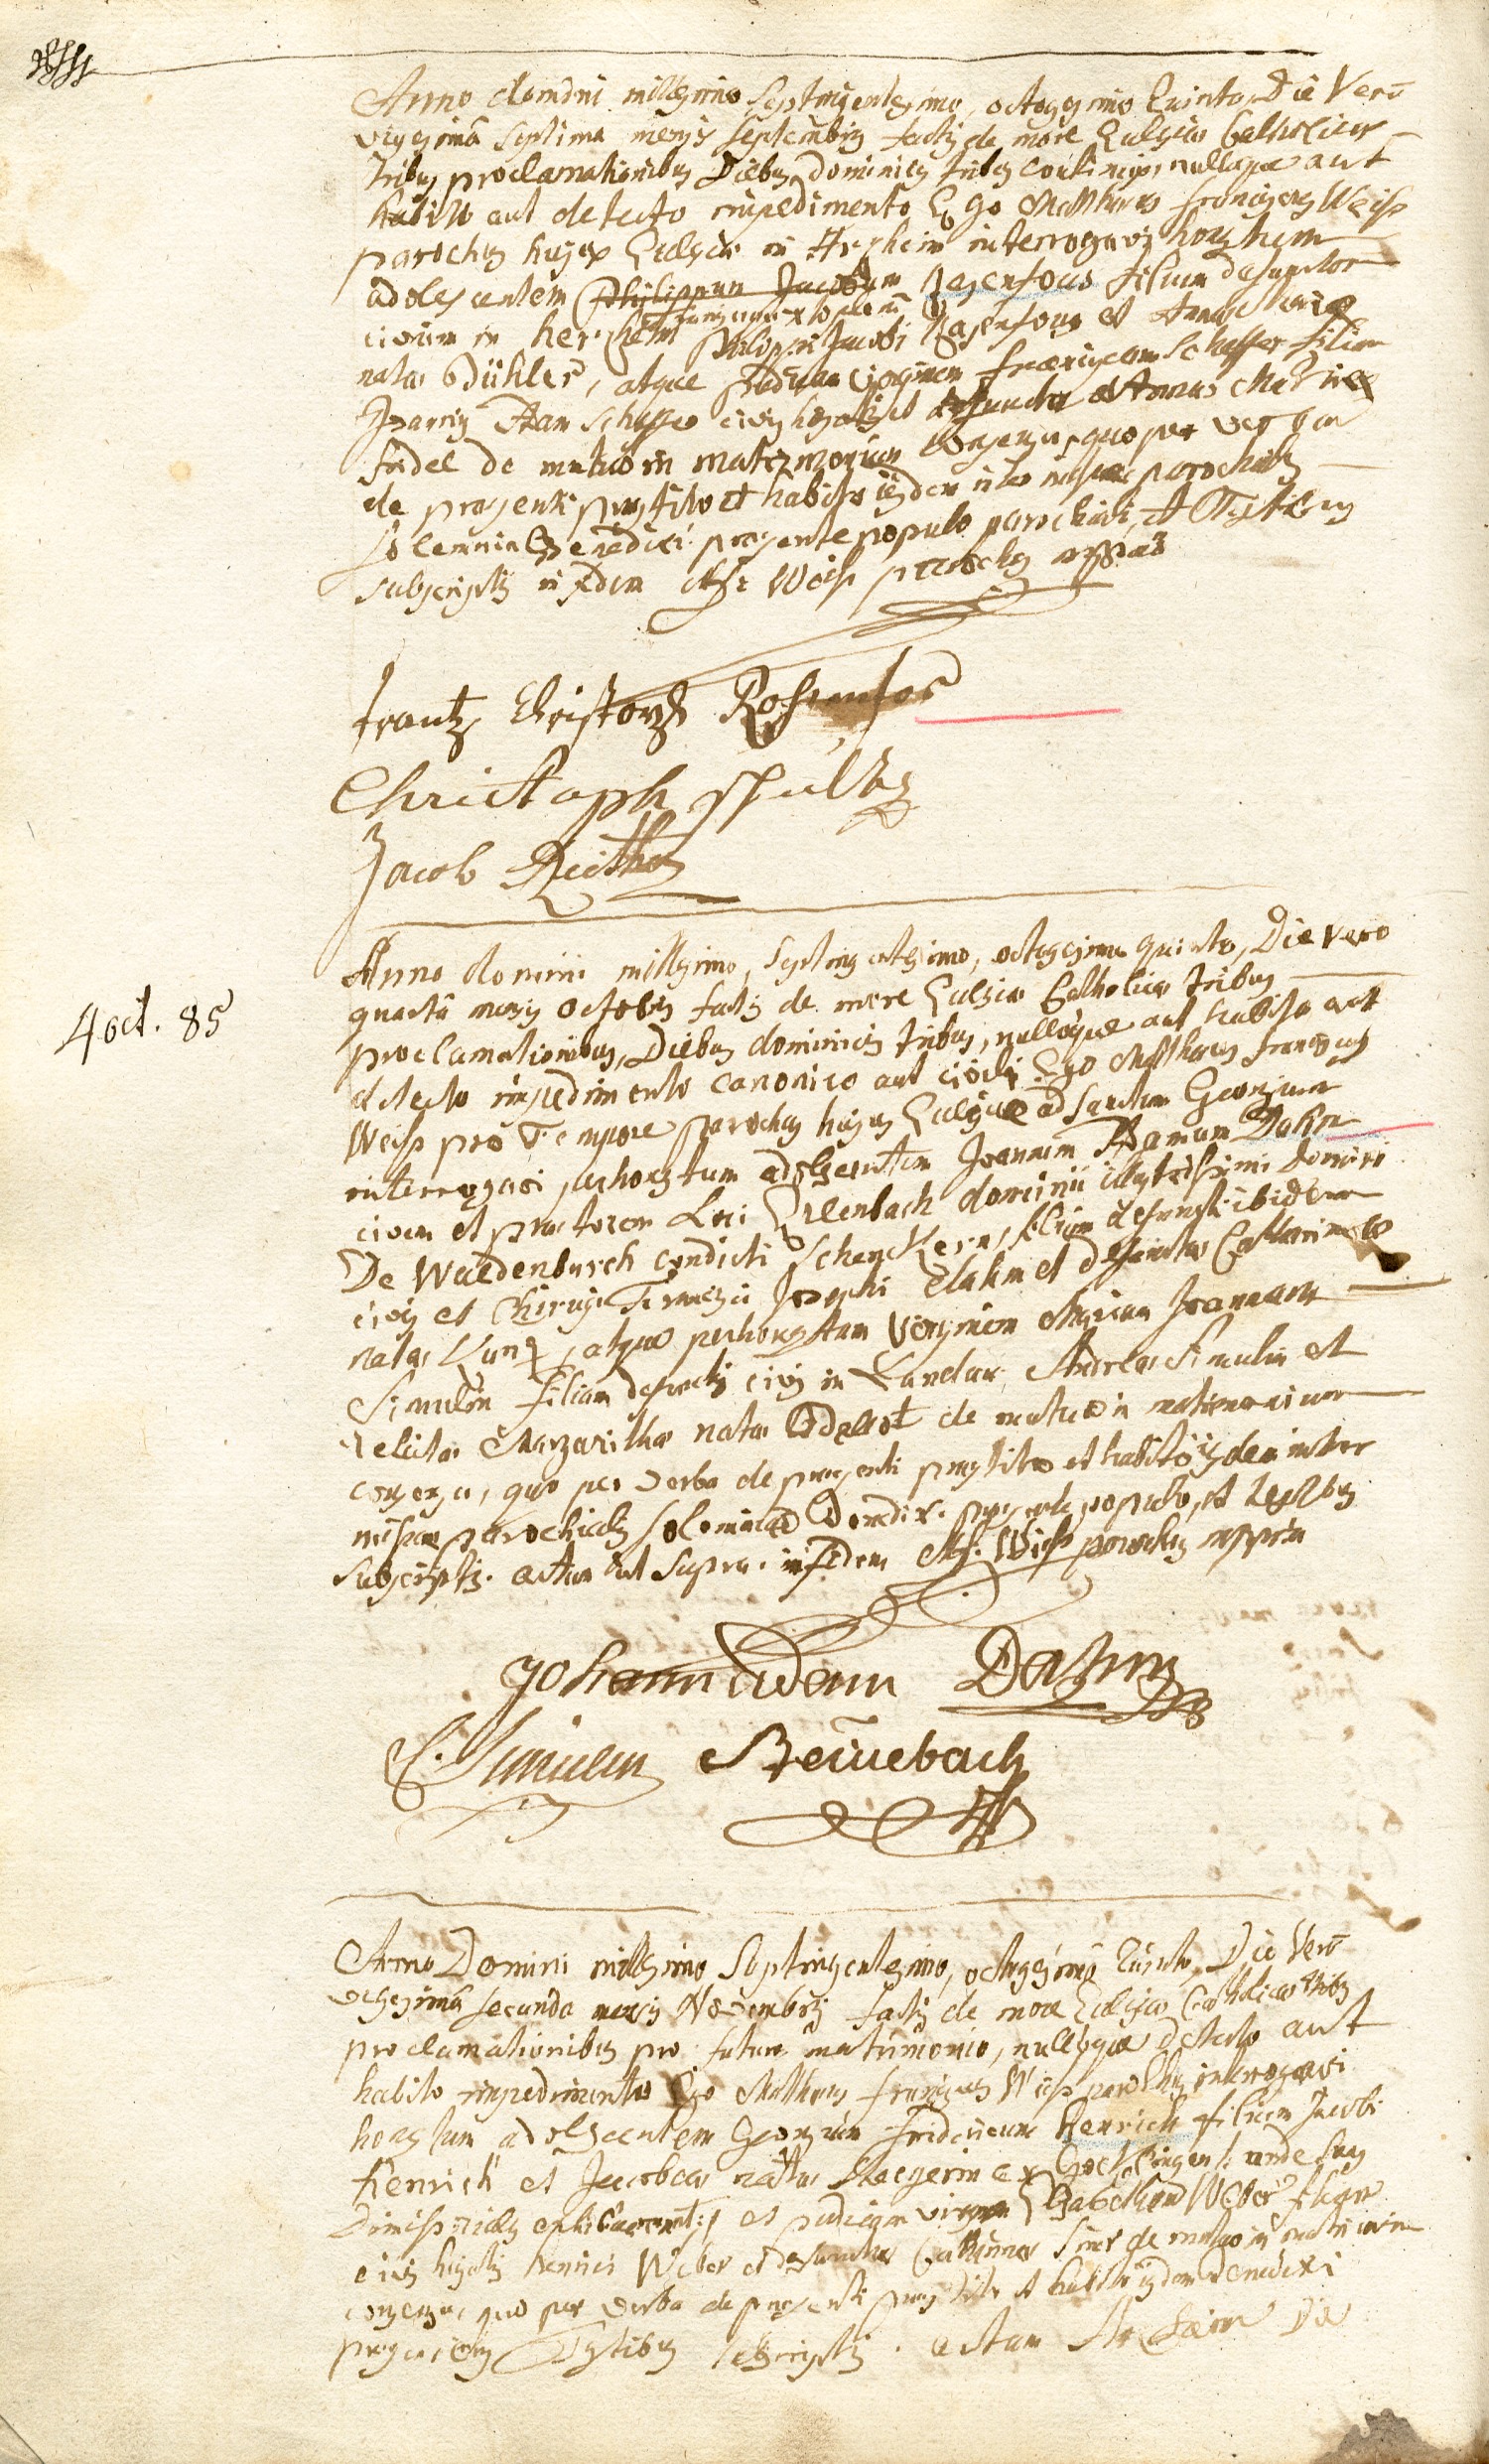 Anno domini millesimo septingentesimo, octogesimo Quinto, Die Vero
vigesimâ septima mensis septembris factis de more Ecclesiae Catholicae
tribus proclamationibus Diebus dominicis tribus continuis, nulloque aut
habito aut detecto impedimento Ego Mathaeus franciscus Weiss
parochus hujus Ecclesiae in Arzheim interrogavi honestum
adolescentem Philippum Jacobum Rosenfous filium defunctor
civium in herxheim Philippi Jacobi Rosenfous et Annae Mariae
natae Bühler, atque pudicam virginem franciscam Schaffer filiam
Adam Schaffer civis hujatis et defunctae Annae Mariae
de mutuo in matrimonium consensu, quo per verba
de praesenti praestito et habito iisdem inter missae parochialis
solemnia Benedixi praesente populo parochiali, et Testibus
subscriptis in fidem Mf: Weiss parochus mppria
frantz Christoph Rosenfos
Christoph Shultz
Jacob Reither
4 oct. 85
Anno domini millesimo, septingentesimo, octogesimo quinto, Die vero
quartâ mensis octobris factis de more Ecclesiae Catholicae tribus
proclamationibus, Diebus dominicis tribus, nulloque aut habito aut
detecto impedimento canonico aut civili Ego Mathaeus franciscus
Weiss pro Tempore parochus hujus Ecclesiae ad Sanctum Georgium
interrogavi perhonestum adolescentem Joannem Adamum Dahm
civem et praetorem Loci Erlenbach dominii illustrissimi Domini
De Waldenburch condicti Schenckern, filium defuncti ibidem
civis et Chirurgi Josephi Dahm et defunctae Catharinae
natae Kunz, atque perhonestam Virginem Mariam Joannam
Simulin filiam defuncti civis in Landau Andreae Simulin et
relictae Margarithae natae de mutuo in matrimonium
consensu, quo per verba de praesenti praestito et habito iisdem inter
missae parochialis solemnia Benedixi. praesente populo, et Testibus
subscriptis. actum ut supra. in fidem Mf. Weiss parochus mppria
Johann Adam Dahm
C. Simulin Brennebach
Anno Domini millesimo Septingentesimo, octogesimo Quinto, Die Vero
vigesimâ secunda mensis Novembris factis de more Ecclesiae Catholicae tribus
proclamationibus pro futuro matrimonio, nulloque detecto aut
habito impedimento Ego Mathaeus franciscus Weiss parochus interrogavi
honestum adolescentem Georgium fridericum Henrich filium Jacobi
Henrich et Jacobeae natae Staegerin ex unde suas
Dimissoriales et pudicam virginem Elisabetham Weber filiam
civis hujatis henrici Weber et defunctae Catharinae de mutuo in matrimonium
consensu, quo per verba de praesenti praestito et habito iisdem benedixi
praesentibus Testibus subscriptis. actum Arzheim Die